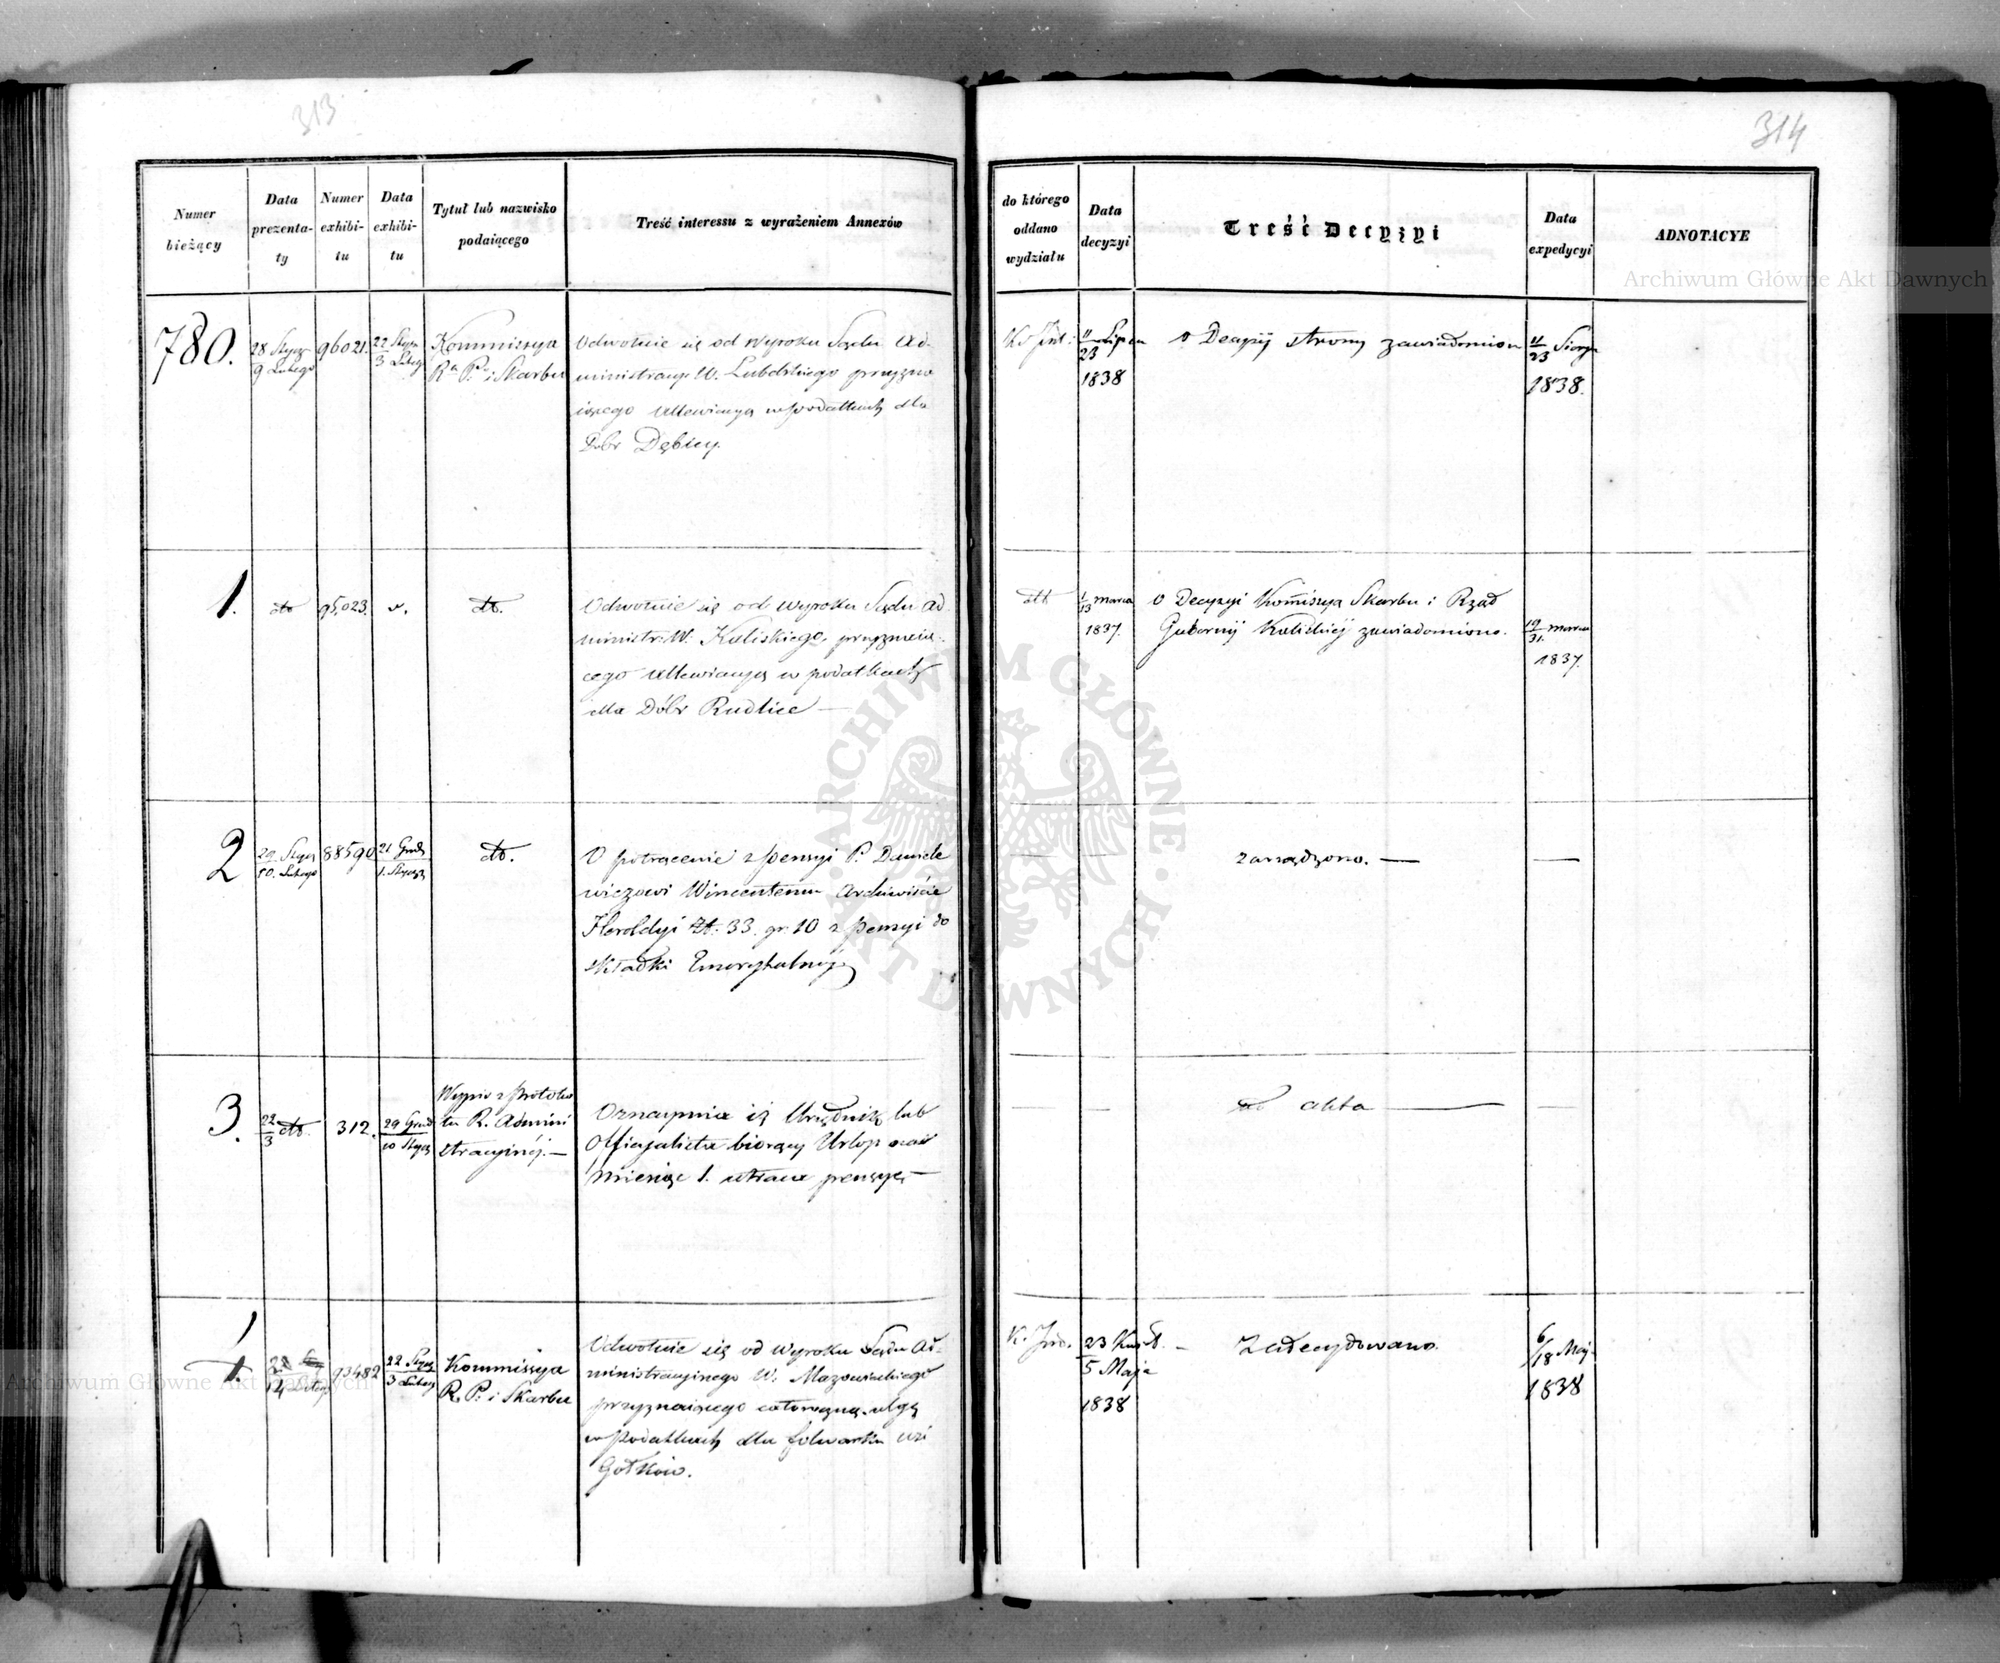 313
314
Numer bieżący
Data prezenta-ty
Numer exhibi-tu
Data exhibi-tu
Tytuł lub nazwisko podaiącego
Treść interessu z wyrażeniem Annexów
do którego oddano wydziału
Data decyzyi
Treść Decyzyi
Data expedycyi
ADNOTACYE
780.
28 Stycz
9 Lutego
96021.
22 Stycz
3 Luteg
Kommissya
R. P. i Skarbu
Odwołnie się od Wyroku Sądu Ad-
ministracyi W. Lubelskiego przyzna
iącego w podatkach dla
Dóbr Dębicy.
11 Lipca
23
1838
o Decyzyi strony zawiadomion
11 Sierp
23
1838.
1.
dto
95,023.
dto.
Odwołnie się od Wyroku Sądu Ad
ministr: W. Kaliskiego, przyznaią-
cego w podatkach
dla Dóbr Rudlice —
dto
1 marca
13
1837.
o Decyzyi Kommissya Skarbu i Rząd
Gubernij Kaliskiéj zawiadomiono.
19 marca
31.
1837.
2
29 Stycz
10. Lutego
88590
21 Grud
1. Stycz
dto.
O potrącenie z pensyi P. Daniele
wiczowi Wincentemu Archiwiście
Heroldyi Zł. 33. gr. 10 z pensyi do
składki Emerytalnéj
zarządzono. —
3.
22
3
dto.
312.
29 Grud
10 Stycz
Wypis z Protoko
łu R. Admini
stracyinéj. —
Oznaymia iż Urzędnik lub
Officyalista biorący Urlop nad
miesiąc 1. utraca pensyę —
ad akta —
1
14 Luteg
93482
22 Stycz
3 Luteg
Kommissya
R. P. i Skarbu
Odwołnie się od Wyroku Sądu Ad-
ministracyinego W. Mazowieckiego
przyznaiącego całoroczną ulgę
w podatkach dla folwarku wsi
Gołków.
23 Kwiet.
5 Maja
1838
Zadecydowano.
6
18 Maj
1838
Archiwum Główne Akt Dawnych
ARCHIWUM GŁÓWNE AKT DAWNYCH
Archiwum Główne Akt Dawnych